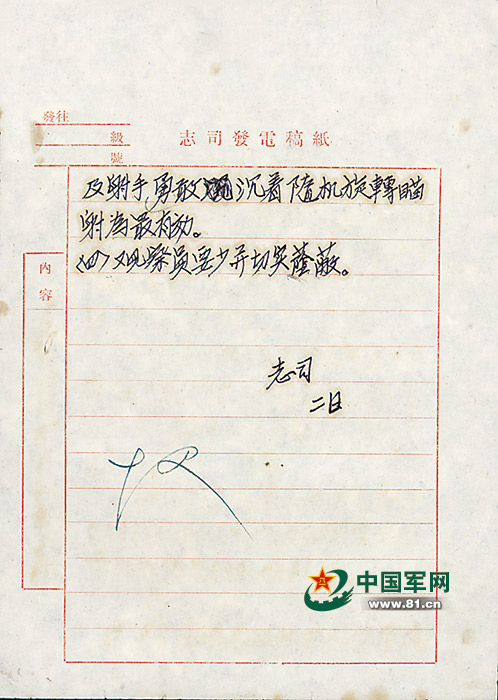 發往
級
號
志司發電稿紙
內容
及射手勇敢沉着随机旋轉瞄
射為最有効。
〈四〉观察員要少并切实蔭蔽。
志司
二日
中国军网
www.81.cn